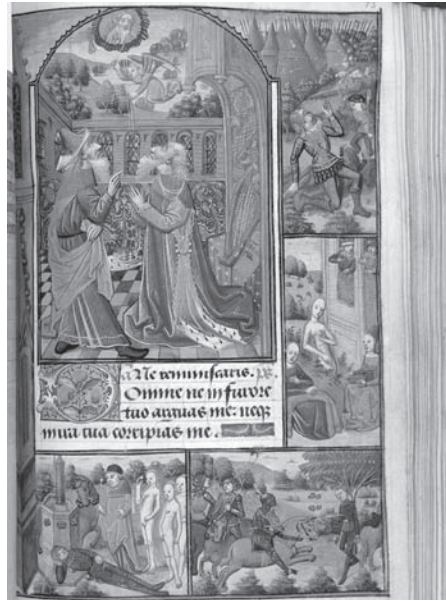 a Ne reminiscaris. ps.
Domine ne in furore
tuo arguas me: neq
in ira tua corripias me.